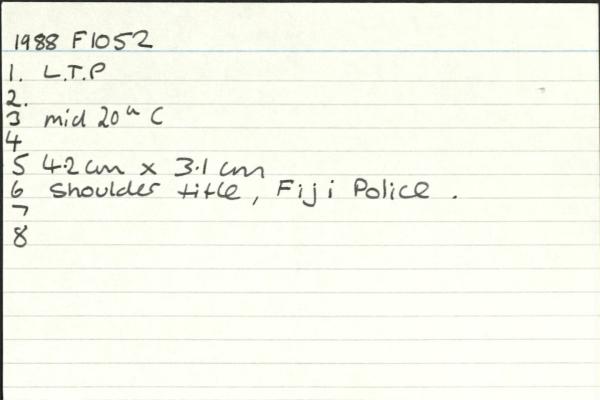 1988 F1052
1. L.T.P
2.
3 mid 20th C
4
5 4.2 cm x 3.1 cm
6 Shoulder title, Fiji Police.
7
8